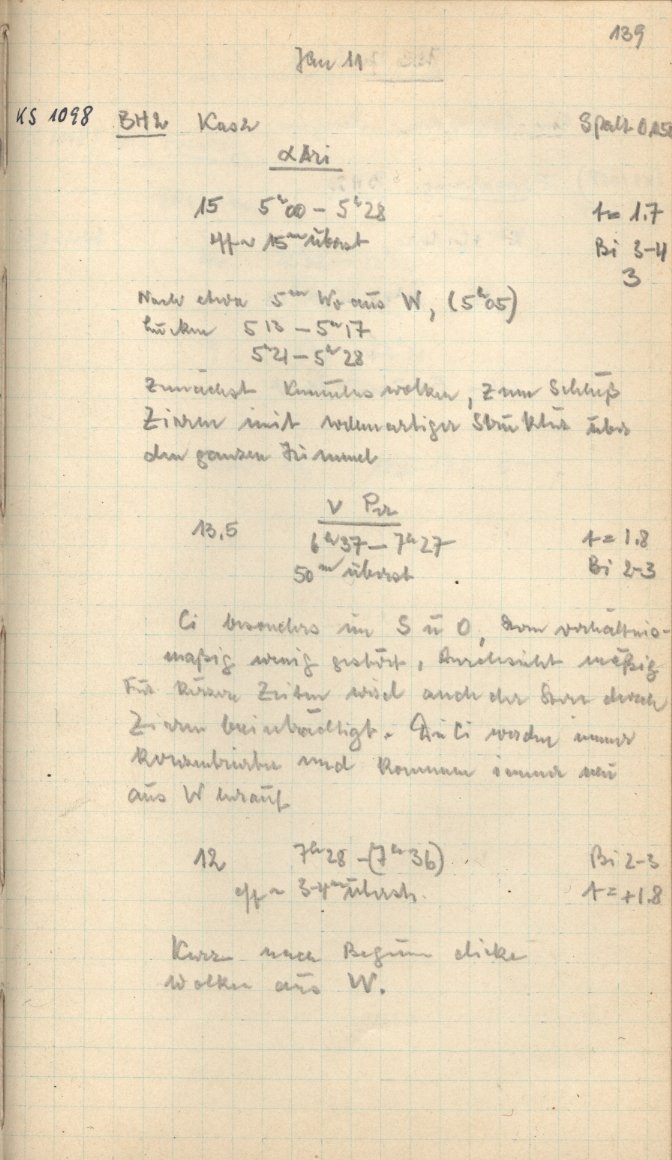 139
Jan 11
KS 1098 BH2 Kas2 Spalt 0.15
α Ari
15 5ʰ00 – 5ʰ28 t = 1.7
eff ~ 15ᵐ überst Bi 3-4
3
Nach etwa 5ᵐ Wo aus W, (5ʰ05)
Lücken 5 13 – 5ʰ17
5ʰ21 – 5ʰ28
Zunächst Kumulus wolken, zum Schluß
Zirren mit wellenartiger Struktur über
den ganzen Himmel
ν Per
13,5 6ʰ37 – 7ʰ27 t = 1.8
50ᵐ überst Bi 2-3
Ci besonders im S u O, Stern verhältnis-
mäßig wenig gestört, Durchsicht mäßig
Für kurze Zeiten wird auch der Stern durch
Zirren beeinträchtigt. Die Ci werden immer
und kommen immer neu
aus W herauf
12 7ʰ28 – (7ʰ36) Bi 2-3
eff ~ 3-4ᵐ überst. t = +1.8
Kurz nach Beginn dicke
Wolken aus W.